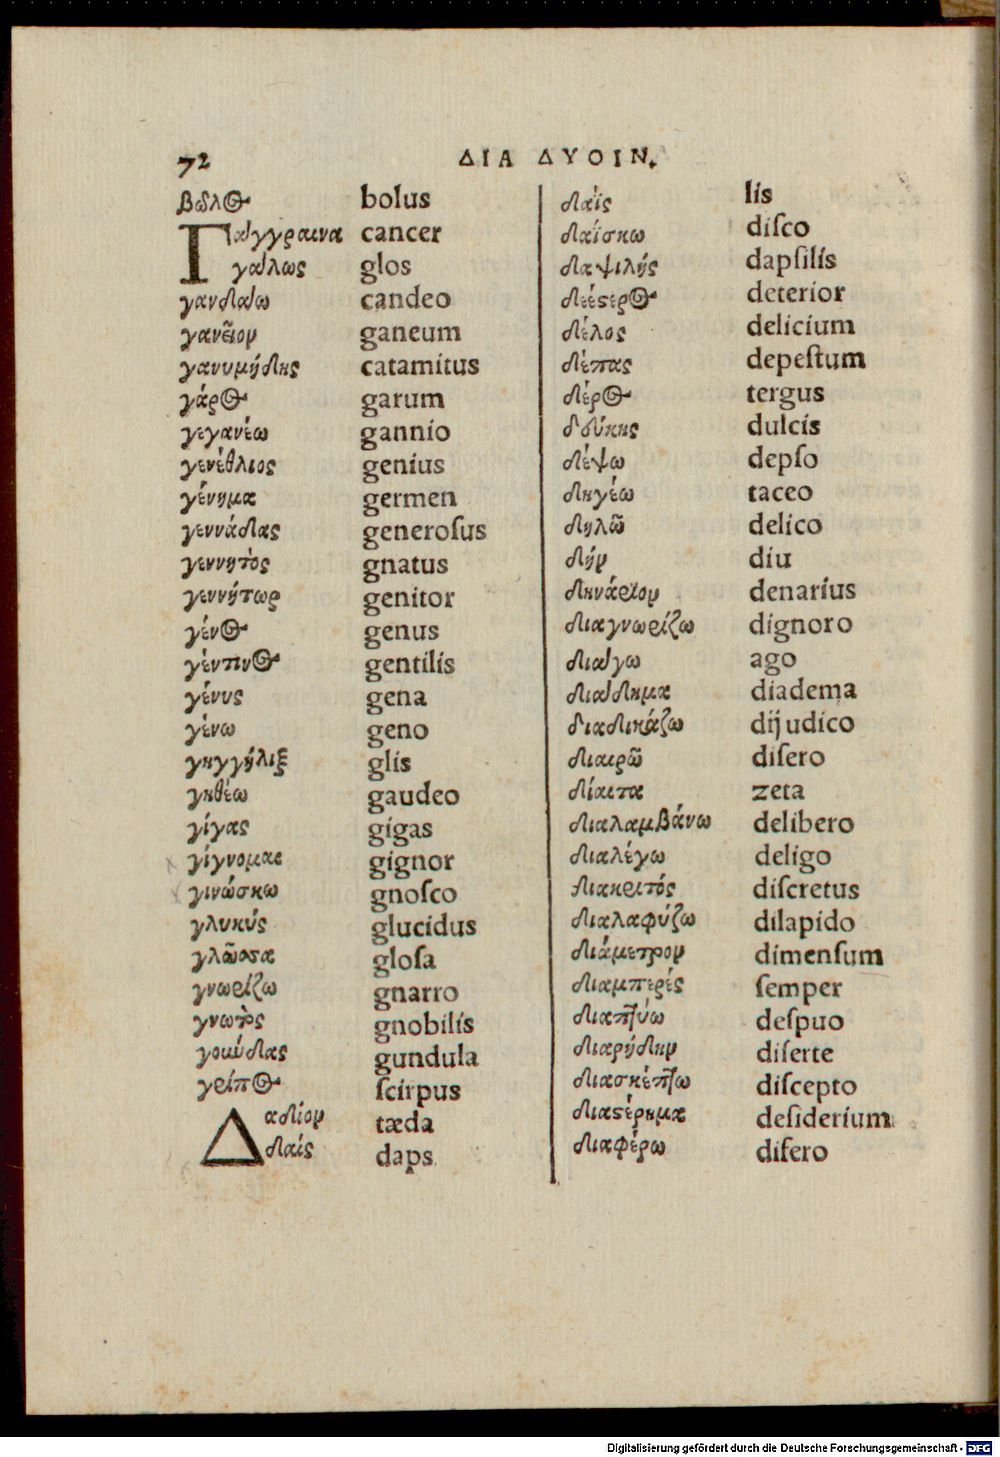 72 ΔΙΑ ΔΥΟΙΝ.
βῶλος bolus
Γάγγραινα cancer
γάλως glos
γανδάω candeo
γανεῖον ganeum
γανυμήδης catamitus
γάρος garum
γεγανέω gannio
γενέθλιος genius
γένημα germen
γεννάδας generoſus
γεννητὸς gnatus
γεννήτωρ genitor
γένος genus
γέντινος gentilis
γένυς gena
γένω geno
γηγγήλιξ glis
γηθέω gaudeo
γίγας gigas
γίγνομαι gignor
γινώσκω gnoſco
γλυκύς glucidus
γλῶσσα gloſa
γνωρίζω gnarro
γνωτὸς gnobilis
gundula
γρίπος ſcirpus
Δαδίον tæda
δαίς daps
δαΐς lis
δαΐσκω diſco
δαψιλής dapſilis
δεέστερος deterior
δέλος delicium
δέπας depeſtum
δέρος tergus
δδύκης dulcis
δέψω depſo
δηγέω taceo
δηλῶ delico
δήν diu
δηνάριον denarius
διαγνωρίζω dignoro
διάγω ago
διάδημα diadema
διαδικάζω dijudico
διαιρῶ diſero
δίαιτα zeta
διαλαμβάνω delibero
διαλέγω deligo
διακριτός diſcretus
διαλαφύζω dilapido
διάμετρον dimenſum
διαμπερές ſemper
διαπτύω deſpuo
διαρήδην diſerte
διασκέπτω diſcepto
διαστέρημα deſiderium
διαφέρω difero
Digitalisierung gefördert durch die Deutsche Forschungsgemeinschaft - DFG